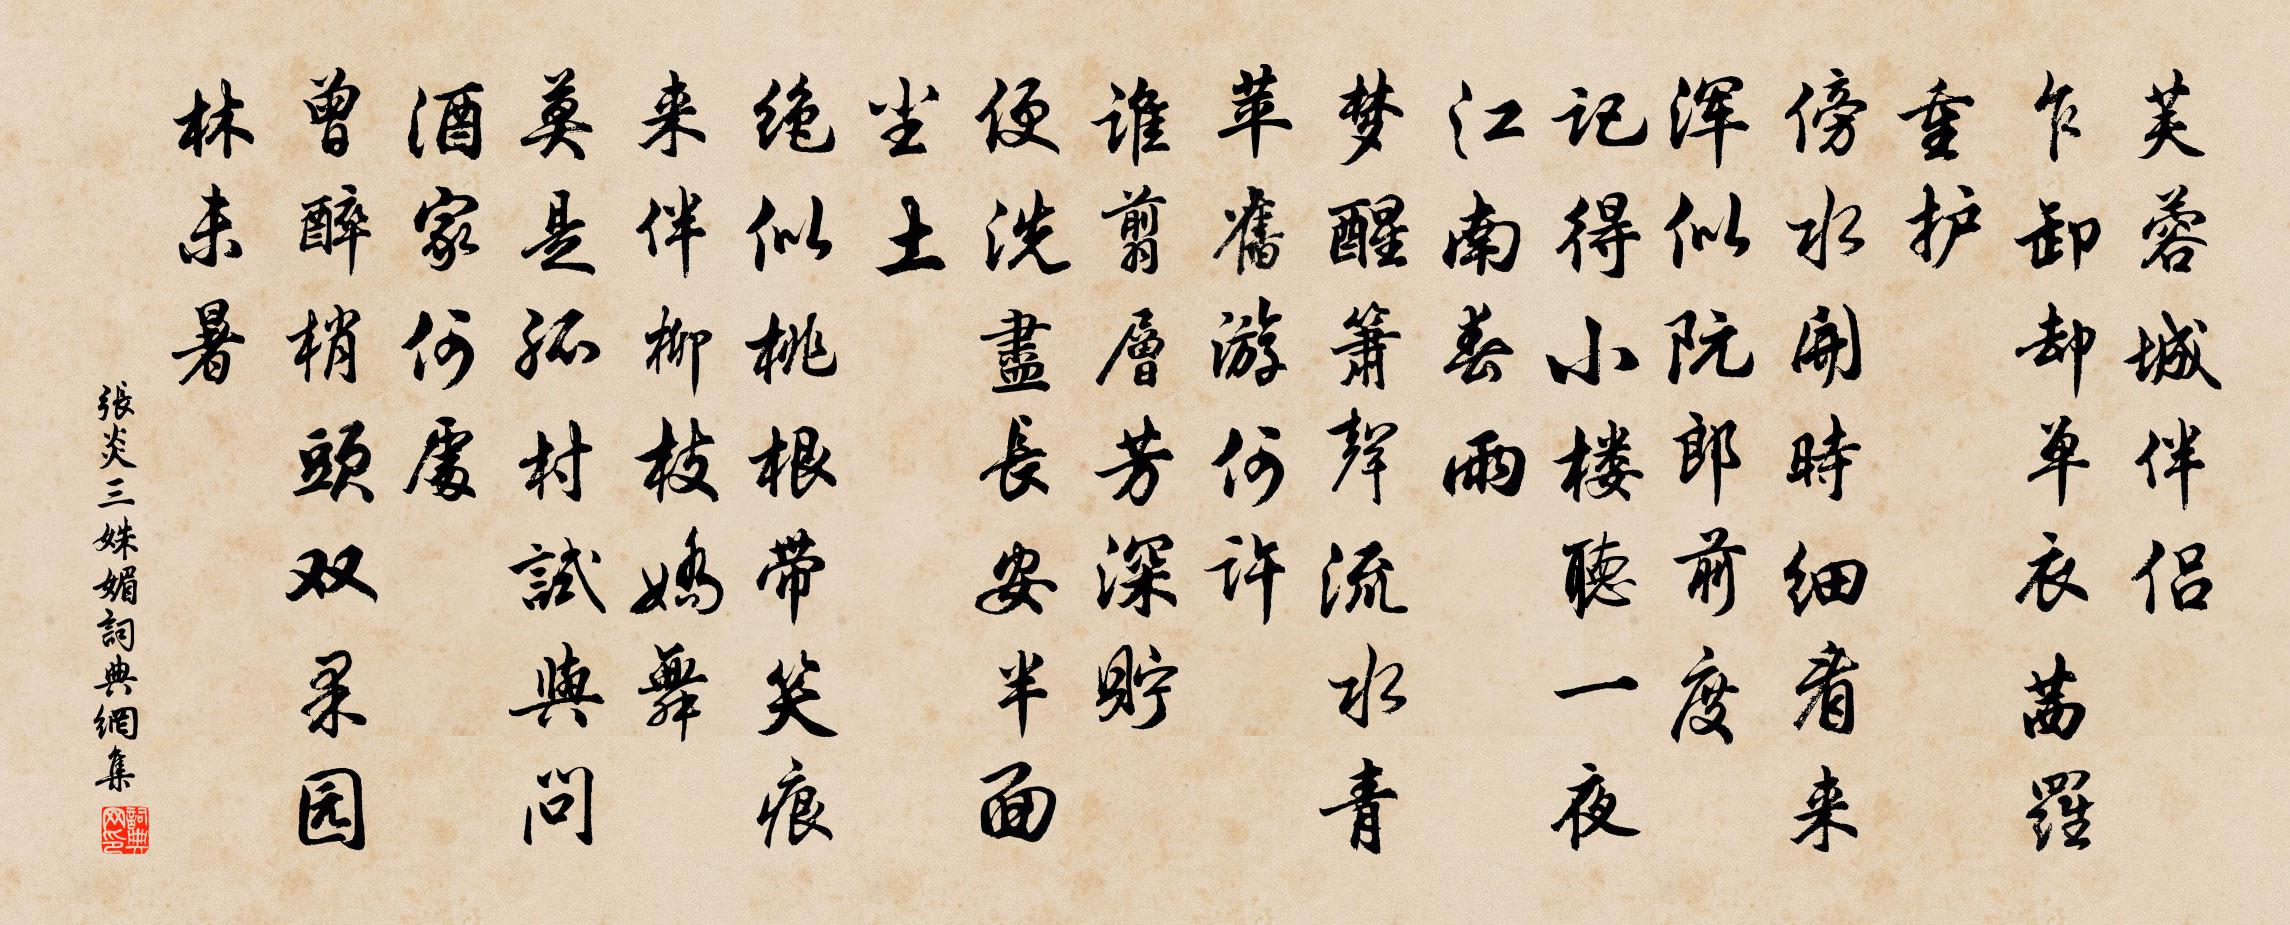 芙蓉城伴侣
乍卸却单衣茜羅
重护
傍水開時细看来
浑似阮郎前度
记得小楼聽一夜
江南春雨
梦醒箫聲流水青
苹舊游何许
谁剪層芳深贮
便洗盡長安半面
尘土
绝似桃根带笑痕
来伴柳枝嬌舞
莫是孤村試與問
酒家何處
曾醉梢頭双果园
林未暑
張炎三姝媚詞典網集
詞典网印